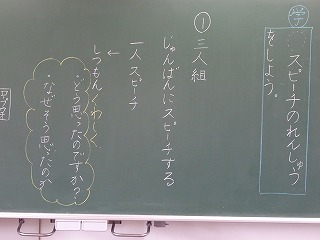 学
スピーチのれんしゅう
をしよう。
① 三人組
じゅんばんにスピーチする
一人スピーチ
↓
しつもん くわしく
・どう思ったのですか？
・なぜそう思ったのか